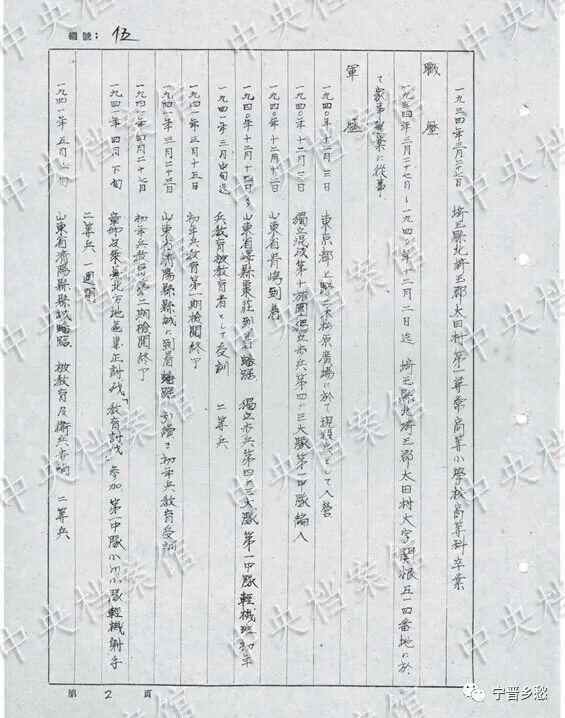 編號：伍
一九三四年三月二十七日　埼玉縣北埼玉郡太田村第一尋常高等小學校高等科卒業
職歷
一九三四年三月二十七日～一九四〇年十二月二日迄　埼玉縣北埼玉郡太田村大字関根五一四番地に於
て家事農業に從事
軍歷
一九四〇年十二月三日　東京都上野三本松原廣場に於て現役兵として入營
一九四〇年十二月三日　獨立混成第十旅團獨立步兵第四十三大隊第一中隊編入
一九四〇年十二月十二日　山東省青島到着
一九四〇年十二月十四日～　山東省縣東莊到着　獨立步兵第四十三大隊第一中隊輕機班初年
一九四一年三月中旬迄　兵教育被教育者として受訓　二等兵
一九四一年三月十五日　初年兵教育第一期檢閱終了
一九四一年三月二十三日　山東省濟陽縣縣城に到着　引續き初年兵教育受訓
一九四一年四月二十七日　初年兵教育第二期檢閱終了
一九四一年四月下旬　章邱文祖東北方地區「教育討伐」參加　第一中隊小隊輕機射手
二等兵　一週間
一九四一年五月　山東省濟陽縣縣城　被教育及衛兵　二等兵
第2頁
中央档案馆
宁晋乡愁